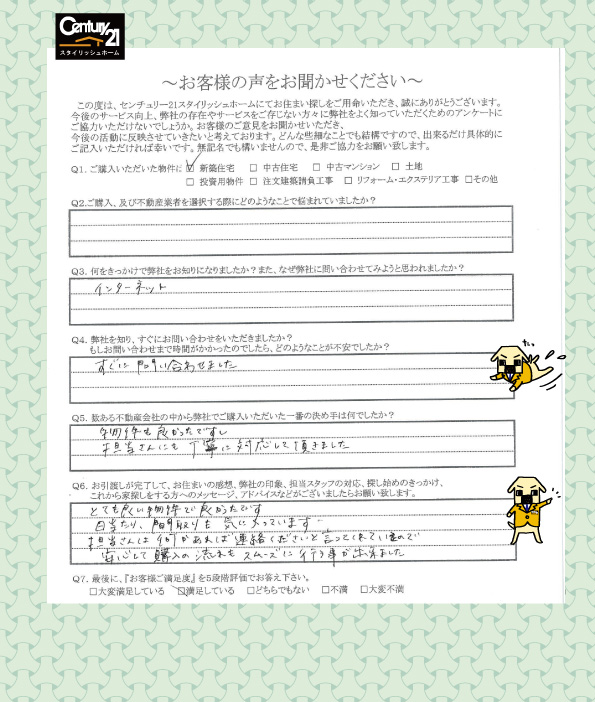 Century 21
スタイリッシュホーム
～お客様の声をお聞かせください～
この度は、センチュリー21スタイリッシュホームにてお住まい探しをご用命いただき、誠にありがとうございます。
今後のサービス向上、弊社の存在やサービスをご存じない方々に弊社をよく知っていただくためのアンケートに
ご協力いただけないでしょうか。お客様のご意見をお聞かせいただき、
今後の活動に反映させていきたいと考えております。どんな些細なことでも結構ですので、出来るだけ具体的に
ご記入いただければ幸いです。無記名でも構いませんので、是非ご協力をお願い致します。
Q1. ご購入いただいた物件は ☑ 新築住宅 □ 中古住宅 □ 中古マンション □ 土地
□ 投資用物件 □ 注文建築請負工事 □ リフォーム・エクステリア工事 □その他
Q2.ご購入、及び不動産業者を選択する際にどのようなことで悩まれていましたか？
Q3. 何をきっかけで弊社をお知りになりましたか？また、なぜ弊社に問い合わせてみようと思われましたか？
インターネット
Q4. 弊社を知り、すぐにお問い合わせをいただきましたか？
もしお問い合わせまで時間がかかったのでしたら、どのようなことが不安でしたか？
すぐに問い合わせました
Q5. 数ある不動産会社の中から弊社でご購入いただいた一番の決め手は何でしたか？
物件も良かったですし
担当さんにも丁寧に対応して頂きました
Q6. お引渡しが完了して、お住まいの感想、弊社の印象、担当スタッフの対応、探し始めのきっかけ、
これから家探しをする方へのメッセージ、アドバイスなどがございましたらお願い致します。
とても良い物件で良かったです
日当たり、間取りも気に入っています
担当さんは何かあれば連絡くださいと言ってくれているので
安心して購入の流れもスムーズに行う事が出来ました
Q7. 最後に、『お客様ご満足度』を5段階評価でお答え下さい。
□大変満足している ☑満足している □どちらでもない □不満 □大変不満